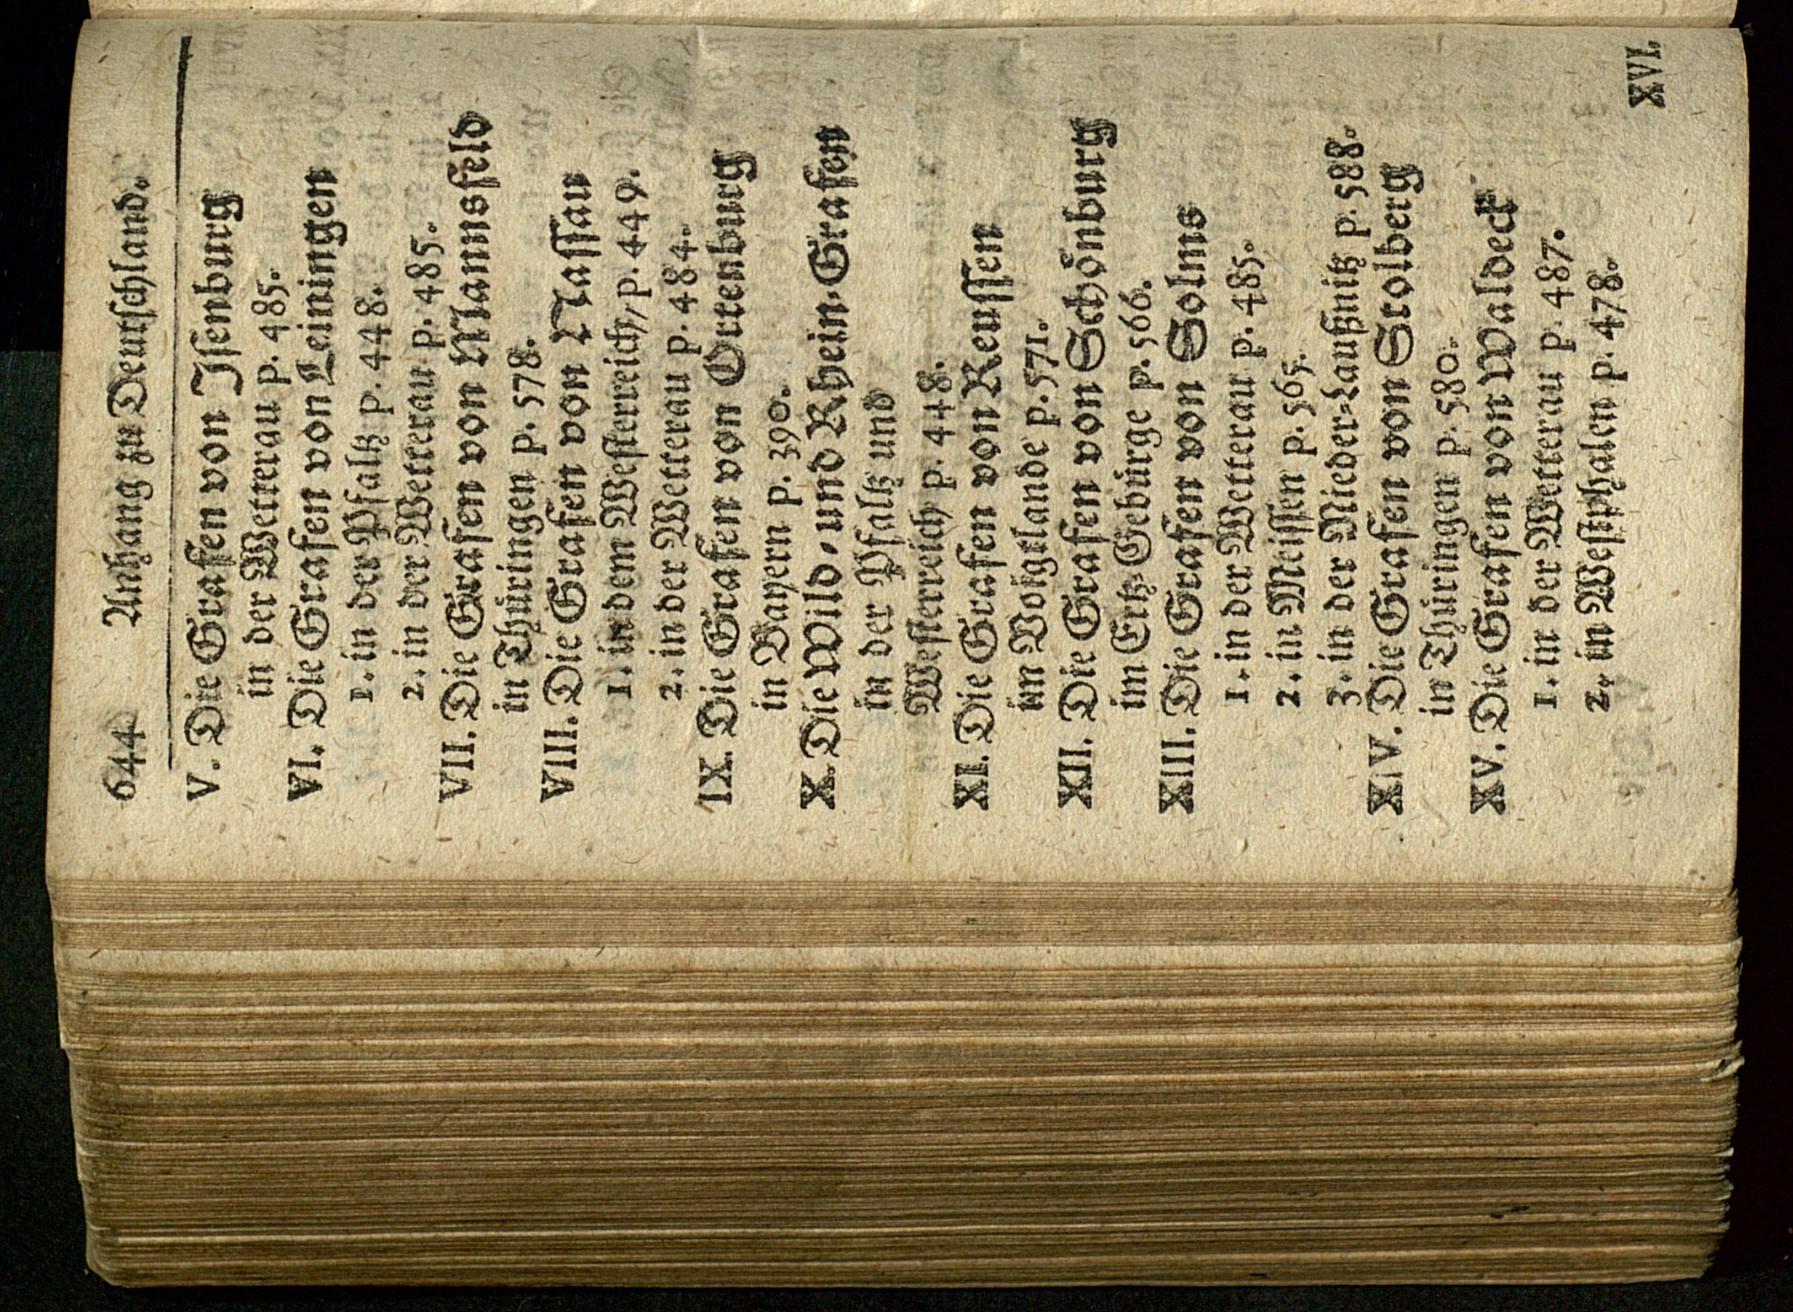 644 Anhang zu Deutschland.
V. Die Grafen von Isenburg
in der Wetterau p. 485.
VI. Die Grafen von Leiningen
1. in der Pfaltz p. 448.
2. in der Wetterau p. 485.
VII. Die Grafen von Mannsfeld
in Thüringen p. 578.
VIII. Die Grafen von Nassau
1. in dem Westerreich, p. 449.
2. in der Wetterau p. 484.
IX. Die Grafen von Ortenburg
in Bayern p. 390.
X. Die Wild- und Rhein-Grafen
in der Pfaltz und
Westerreich p. 448.
XI. Die Grafen von Reussen
im Voigtlande p. 571.
XII. Die Grafen von Schönburg
im Ertz-Gebürge p. 566.
XIII. Die Grafen von Solms
1. in der Wetterau p. 485.
2. in Meissen p. 565.
3. in der Nieder-Laußnitz p. 588.
XIV. Die Grafen von Stolberg
in Thüringen p. 580.
XV. Die Grafen von Waldeck
1. in der Wetterau p. 487.
2. in Westphalen p. 478.
XVI.